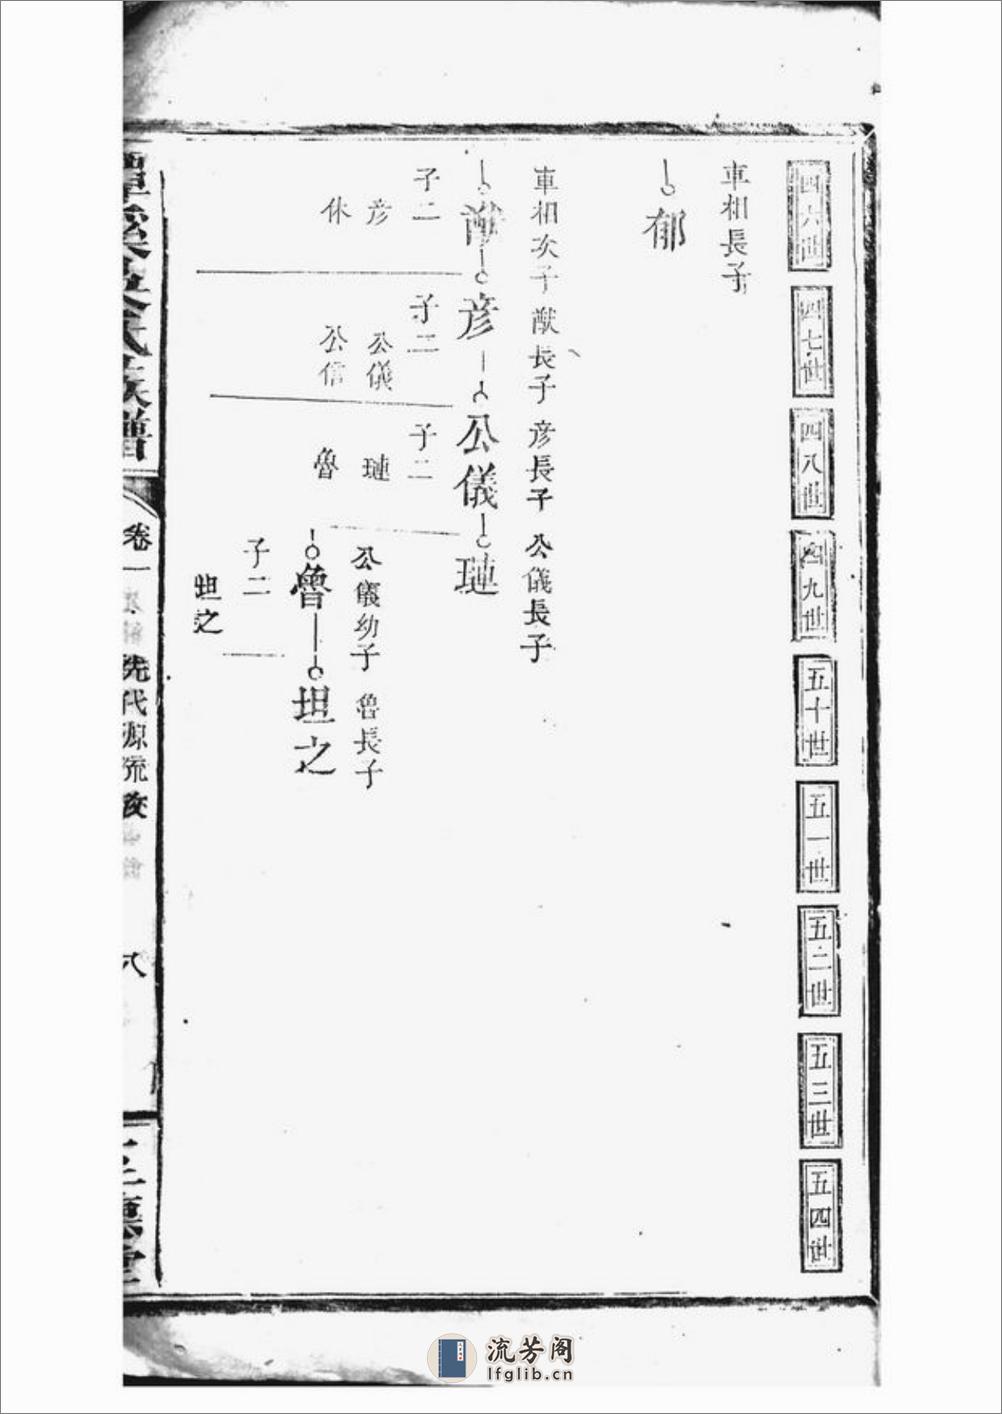 四六世
四七世
四八世
四九世
五十世
五一世
五二世
五三世
五四世
車相長子
郁
車相次子
猷長子
彦長子
公儀長子
猷
彦
公儀
璉
子二
彦
休
子二
公儀
公信
子二
璉
魯
公儀幼子
魯長子
魯
坦之
子二
坦之
氏族譜
卷一
先代源流
八
堂
流芳阁
lfglib.cn